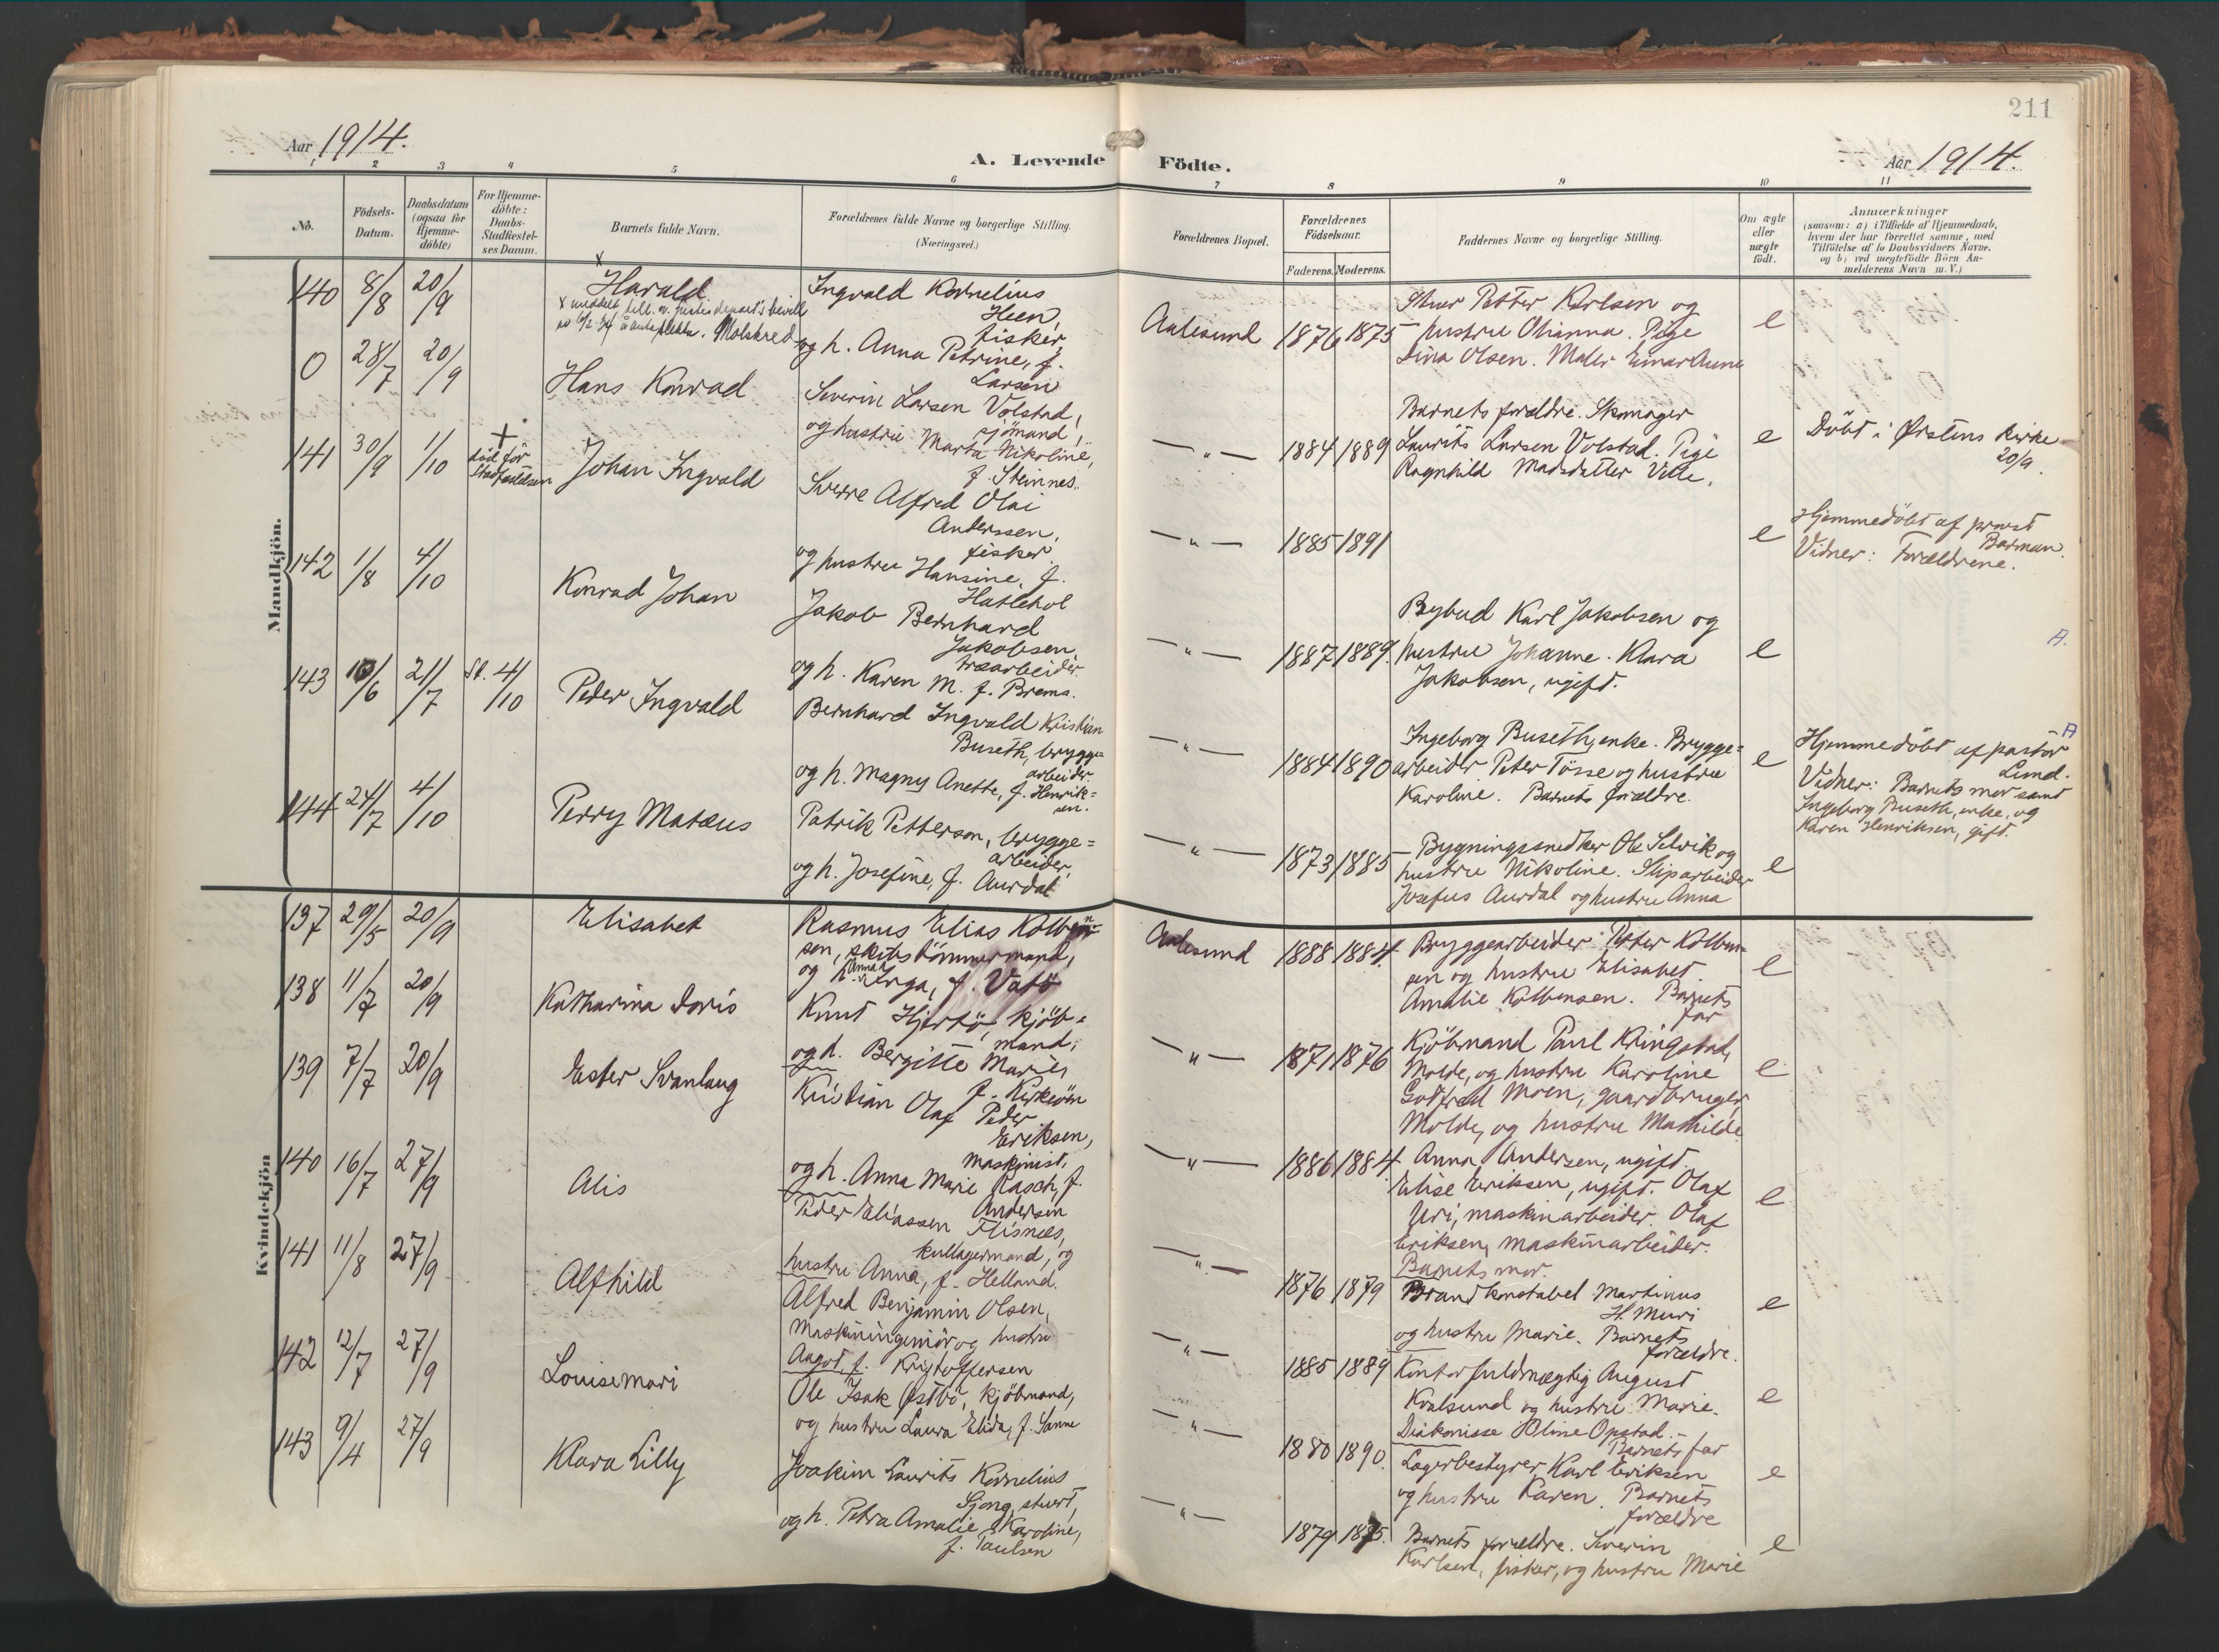 211
Aar 1914.
A. Levende Födte.
Aar 1914.
1 2 3 4 5 6 7 8 9 10 11
No.
Födsels-Datum.
Daabsdatum (ogsaa for Hjemme-döbte)
For Hjemme-döbte: Daabs-Stadfestel-ses Datum.
Barnets fulde Navn.
Forældrenes fulde Navne og borgerlige Stilling.
(Næringsvei.)
Forældrenes Bopæl.
Forældrenes Födselsaar.
Faderens. Moderens.
Faddernes Navne og borgerlige Stilling.
Om ægte eller uægte födt.
Anmærkninger
(saasom: a) i Tilfælde af Hjemmedaab, hvem der har forrettet samme, med Tilföielse af to Daabsvidners Navne, og b) ved uægtefödte Börn An-melderens Navn m. V.)
Mandkjön.
140 8/8 20/9
x
Harald
Molskred
Ingvald Kornelius
Heen,
fisker,
og h. Anna Petrine, f.
Larsen
Aalesund 1876 1875
Petter Karlsen og
hustru Olianna. Pige
Lina Olsen. Maler Einar Aune
e
0 28/7 20/9
Hans Konrad
Severin Larsen Volstad,
sjömand,
og hustru Marta Nikoline,
f. Steinnes.
— " — 1884 1889
Barnets forældre. Skomager
Laurits Larsen Volstad. Pige
Ragnhild Madsdatter Velle.
e
Döbt i Ørstens Kirke
20/9.
141 30/9 1/10
+
död før
Stadfæstelsen
Johan Ingvald
Sverre Alfred Olai
Anderssen,
fisker
og hustru Hansine, f.
Hatlehol
— " — 1885 1891
e
Hjemmedöbt af provst
Barman.
Vidner: Forældrene.
142 1/8 4/10
Konrad Johan
Jakob Bernhard
Jakobsen,
træarbeider
og h. Karen M. f. Brems.
— " — 1887 1889.
Bybud Karl Jakobsen og
hustru Johanne. Klara
Jakobsen, ugift.
e
A.
143 10/6 21/7 St. 4/10
Peder Ingvald
Bernhard Ingvald Kristian
Buseth, brygge=
arbeider.
og h. Magny Anette, f. Henrik=
sen.
— " — 1884 1890
Ingeborg Buseth, enke. Brygge=
arbeider Peter Tösse og hustru
Karoline. Barnets forældre.
e
A
Hjemmedöbt af pastor
Lund.
Vidner: Barnets mor samt
Ingeborg Buseth, enke, og
Karen Henriksen, gift.
144 24/7 4/10
Perry Matæus
Patrik Petterson, brygge=
arbeider,
og h. Josefine, f. Aurdal
— " — 1873 1885
Bygningssnedker Ole Selvik og
hustru Nikoline. Sliparbeider
Josefus Aurdal og hustru Anna
e
Kvindekjön
137 29/5 20/9
Elisabet
Rasmus Elias Kolben-
sen, skibstömmermand,
og h. Anna Inga, f. Vatö
Aalesund 1888 1884.
Bryggearbeider Peter Kolben-
sen og hustru Elisabet.
Amalie Kolbensen. Barnets
far
e
138 11/7 20/9
Katharina Doris
Knut Hjertö, kjöb=
mand,
og h. Bergitte Marie,
f. Kirkeöen
— " — 1871 1876
Kjöbmand Paul Kringstad,
Molde, og hustru Karoline
Gotfred Moen, gaardbruger,
Molde, og hustru Mathilde
e
139 7/7 20/9
Ester Svanlaug
Kristian Olaf Peder
Eriksen,
maskinist,
og h. Anna Marie Rasch, f.
Andersen
— " — 1886 1884.
Anna Andersen, ugift.
Elise Eriksen, ugift. Olaf
Uri, maskinarbeider. Olaf
Eriksen, maskinarbeider.
Barnets mor.
e
140 16/7 27/9
Alis
Peder Eliassen Flisnæs,
kullagermand, og
hustru Anna, f. Helland.
— " — 1876 1879
Brandkonstabel Martinus
H. Muri
og hustru Marie. Barnets
forældre.
e
141 11/8 27/9
Alfhild
Alfred Benjamin Olsen,
maskiningeniör og hustru
Aagot, f. Kristoffersen
— " — 1885 1889
Kontorfuldmægtig August
Kvalsund og hustru Marie.
Diakonisse Oline Opstad.
Barnets far
e
142 12/7 27/9
Louise Mari
Ole Isak Østbö, kjöbmand,
og hustru Laura Elida, f. Sanne
— " — 1880 1890.
Lagerbestyrer Karl Eriksen
og hustru Karen. Barnets
forældre
e
143 9/4 27/9
Klara Lilly
Joakim Laurits Kornelius
Sjong, stuert,
og h. Petra Amalie Karoline,
f. Paulsen
— " — 1879 1875.
Barnets forældre. Severin
Karlsen, fisker, og hustru Marie
e